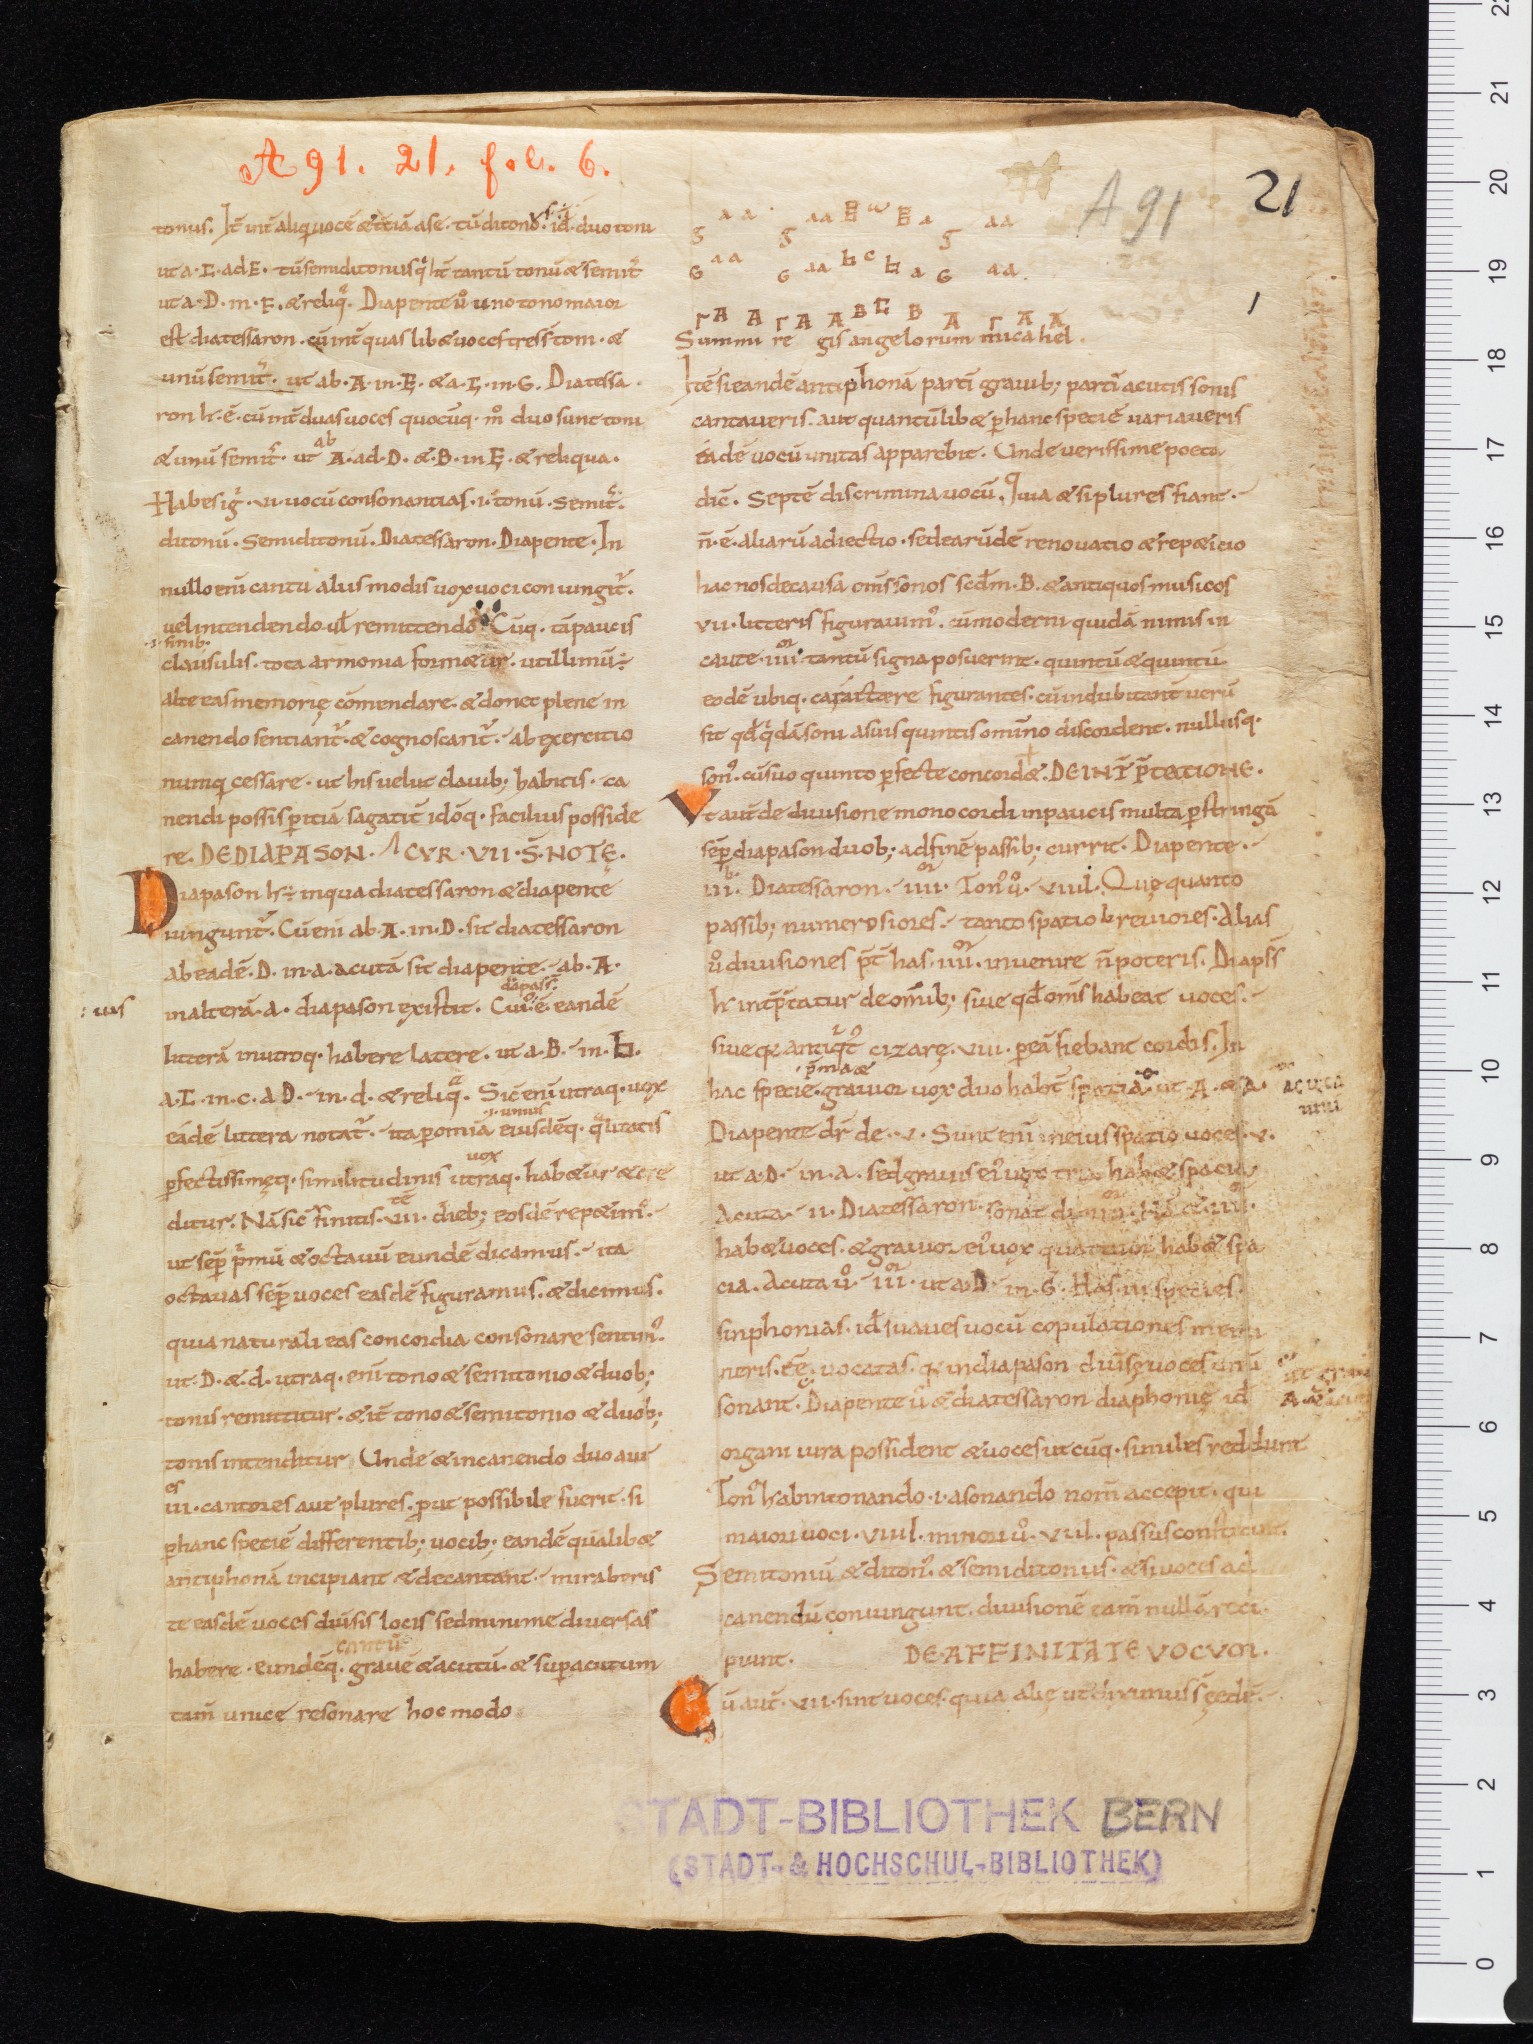 A 91. 21. fol. 6.
A 91
21
1
tonus. It̄ int̄ aliquā uocē & t̄ciā a se. tū diton᷒. id̄. duo toni
ut a. C. ad E. tū semiditonus q̄ h̄t tantū tonū & semit̄.
ut a. D. in. F. & reliq̄. Diapente u͛o uno tono maior
est diatessaron. cū int̄ quas lib& uoces tres s̄t toni. &
unū semit̄. ut ab. A. in. E. & a. C. in. G. Diatessa
ron h. ē. cū int̄ duas uoces quocūq. m͛ duo sunt toni
& unū semit̄. ut ab A. ad. D. & B. in E. & reliqua.
Habes ig̓. VI. uocū consonantias. i. tonū. Semit̄.
ditonū. Semiditonū. Diatessaron. Diapente. In
nullo eni cantu aliis modis uox uoci coniungit̄.
uel intendendo. ul̄ remittendo. Cūq. tā paucis
.i. finib.
clausulis. tota armonia form&ur. utillimū ÷
alte eas memorię cōmendare. & donec plene in
canendo sentiant̄. & cognoscant̄. ab exercitio
numq̄ cessare. ut his uelut clauib; habitis. ca
nendi possis p̄itiā sagacit̄ idōq. facilius posside
re. DE DIAPASON. / CVR. VII. S̄. NOTĘ.
Diapason h ÷ in qua diatessaron & diapente
iungunt̄. Cū eni ab. A. in. D. sit diatessaron
ab eadē. D. in. a. acutā sit diapente. ab. A.
diapas̄s̄
: ius
in alterā. a. diapason existit. Cui᷒. ē. eandē
litterā in utroq. habere latere. ut a. B. in. ♮.
a. C. in. c. a D. in. d. & reliq̄. Sic eni utraq. uox
.i. unius
eadē littera notat̄. ita p̄ omia eiusdēq. q̄litatis
uox
p̄fectissimęq. similitudinis utraq. hab&ur & cre
ditur. Nā sic̄ finitis. VII. dieb; eosdē rep&im᷒.
ut sēp p̄mū & octauū eundē dicamus. ita
octauas sēp uoces easdē figuramus. & dicimus.
quia naturali eas concordia consonare sentim᷒.
ut. D. &. d. utraq. eni tono & semitonio & duob;
tonis remittitur. & it̄ tono & semitonio & duob;
tonis intenditur. Unde & in canendo duo aut
es
III. cantores aut plures. put possibile fuerit. si
p̄ hanc speciē differentib; uocib; eandē qualib&
antiphonā incipiant & decantant. miraberis
te easdē uoces diūsis locis sed minime diuersas
cantū
habere. eundēq. grauē & acutū. & sup̄acutum
tam̄ unice resonare hoc modo
g a a g a a ♮ c ♮ a g a a
G a a G a a ♮ c ♮ a G a a.
Γ A A Γ A A B C B A Γ A A
Summi re gis angelorum micahel.
Itē si eandē antiphonā parti grauib; parti acutis sonis
cantaueris. aut quantūlib& p̄ hanc speciē uariaueris
eadē uocū unitas apparebit. Unde uerissime poeta
dic̄. Septē discrimina uocū. Quia & si plures fiant.
n̄. ē. aliarū adiectio. sed earūdē renouatio & rep&icio
hac nos de causa om̄s sonos scd̄m. B. & antiquos musicos
VII. litteris figurauim᷒. cū moderni quidā nimis in
caute. IIII or tantū signa posuerint. quintū & quintū
eodē ubiq. caract&re figurantes. cū indubitant̄ uerū
sit qd̄ q̄dā soni a suis quintis omīno discordent. nullusq.
son᷒. cū suo quinto p̄fecte concord&. DE INT̄P̄TATIONE.
Vt aut̄ de diuisione monocordi in paucis multa p̄stringā
sēp diapason duob; ad finē passib; currit. Diapente.
III b. Diatessaron. IIII or. Ton᷒ u͛o. VIIII. Quę quanto
passib; numerosiores. tanto spatio breuiores. Alias
u͛o diuisiones p̄t̄ has. IIII or. inuenire n̄ poteris. Diaps̄s̄
h int̄p̄tatur de om̄ib; siue qd̄ om̄s habeat uoces.
siue q̄a antiq̄t᷒ cizarę. VIII. p̄ eā fiebant cordis. In
.i. p̄ma a&
hac specie. grauior uox duo hab̄t spatia. ut. A. & a.
Diapente dr̄ de. V. Sunt eni in eius spatio uoces. V.
ut a. D. in. a. sed grauis ei᷒ uox tria hab& spacia
Acuta. II. Diatessaron. sonat de. IIII or.
hab& uoces. & grauior ei᷒ uox quattuor hab& spa
cia. Acuta u͛o. III. ut a. D in. G. Has. III species
sinphonias. id̄ suaues uocū copulationes memi
neris. ēē. uocatas. q̄a in diapason diūsę uoces unū
sonant. Diapente u͛ & diatessaron diaphonię id̄
organi iura possident & uoces ut cūq. similes reddunt
Ton᷒ h ab intonando. i. a sonando nom̄ accepit. qui
maiori uoci. VIIII. minori u͛o. VIII. passus constituit.
Semitoniū & diton᷒. & semiditonus. & si uoces ad
canendū coniungunt. diuisionē tam̄ nullā reci
piunt. DE AFFINITATE VOCVM.
Cū aut̄. VII. sint uoces. quia alię ut diximus s̄ęedē.
acuta
A. & acuta
STADT-BIBLIOTHEK BERN
(STADT- & HOCHSCHUL-BIBLIOTHEK)
0 1 2 3 4 5 6 7 8 9 10 11 12 13 14 15 16 17 18 19 20 21 22